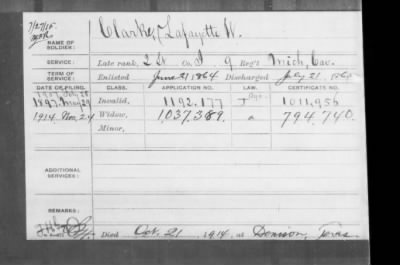 7/27/15
NAME OF SOLDIER: Clarke, Lafayette W.
SERVICE: Late rank, 2 Lt Co. I, 9 Reg't Mich. Cav.
TERM OF SERVICE: Enlisted June 21, 1864 Discharged July 21, 1865
DATE OF FILING. CLASS. APPLICATION NO. LAW. CERTIFICATE NO.
1907 Feb 28 Age
1897 May 29 Invalid, 1192,177 J 1011,956
1914 Nov. 24 Widow, 1037,389. a 794,740.
Minor,
ADDITIONAL SERVICES:
REMARKS:
Died Oct. 21 1914, at Denison, Texas